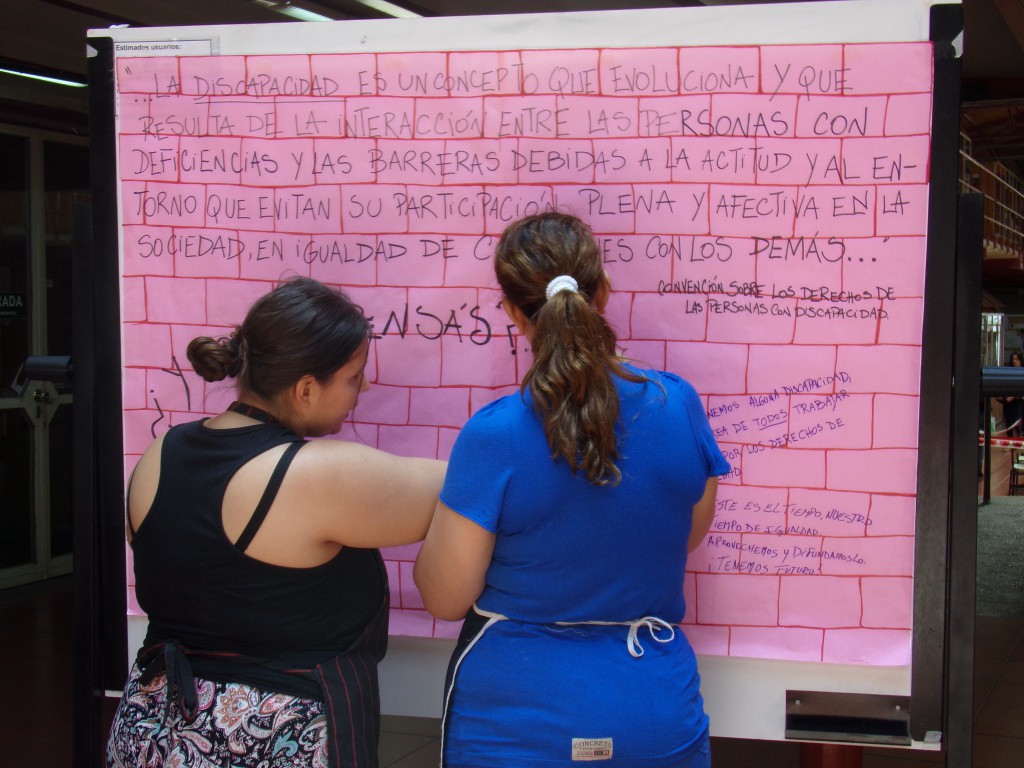 Estimados usuarios:
"...LA DISCAPACIDAD ES UN CONCEPTO QUE EVOLUCIONA Y QUE
RESULTA DE LA INTERACCIÓN ENTRE LAS PERSONAS CON
DEFICIENCIAS Y LAS BARRERAS DEBIDAS A LA ACTITUD Y AL EN-
TORNO QUE EVITAN SU PARTICIPACIÓN PLENA Y AFECTIVA EN LA
SOCIEDAD, EN IGUALDAD DE C ES CON LOS DEMÁS..."
CONVENCIÓN SOBRE LOS DERECHOS DE
LAS PERSONAS CON DISCAPACIDAD.
ENSÁS?
NEMOS ALGUNA DISCAPACIDAD,
REA DE TODOS TRABAJAR
POR LOS DERECHOS DE
DAD.
STE ES EL TIEMPO, NUESTRO
IEMPO DE IGUALDAD.
APROVECHEMOS Y DIFUNDAMOSLO.
¡TENEMOS FUTURO!
RADA
CONCRETO